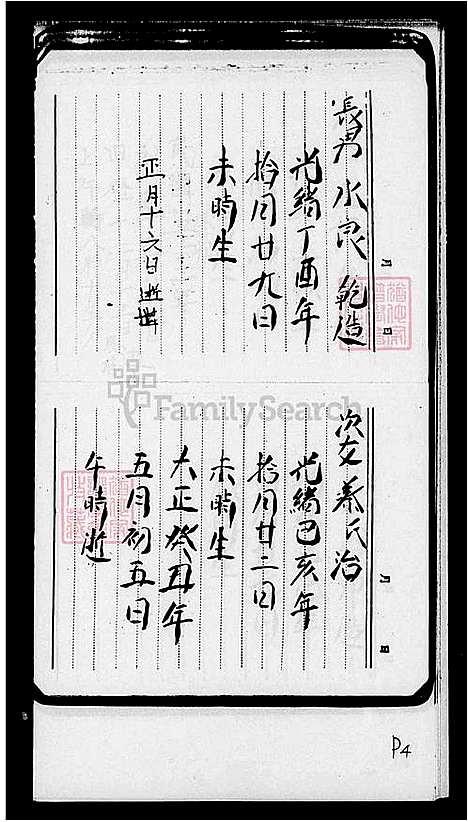 長男水良 乾造
光緒丁酉年
拾月廿九日
未時生
正月十六日逝世
FamilySearch
次女蔡氏治
光緒己亥年
拾月廿二日
未時生
大正癸丑年
五月初五日
午時逝
P4